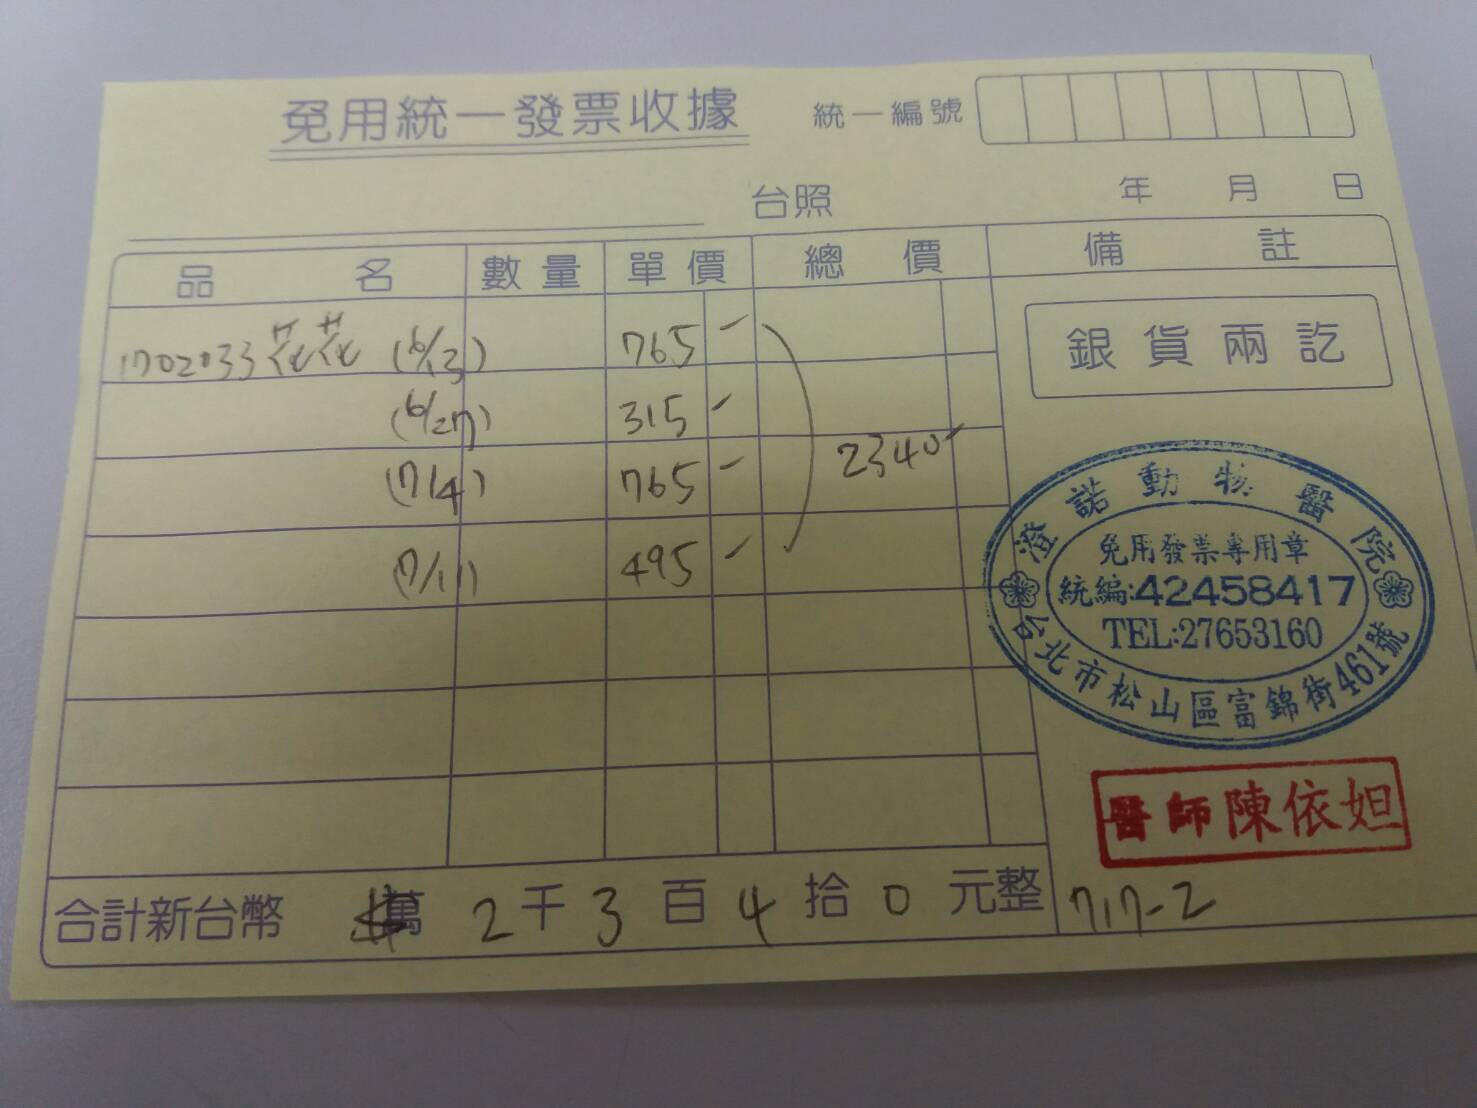 免用統一發票收據 統一編號
台照 年 月 日
品名 數量 單價 總價 備註
1702033 花花 (6/13) 765-
(6/27) 315-
(7/4) 765-
(7/11) 495-
2340-
銀貨兩訖
澄諾動物醫院
免用發票專用章
統編:42458417
TEL:27653160
台北市松山區富錦街461號
醫師陳依妲
合計新台幣 萬 2 千 3 百 4 拾 0 元整
717-2